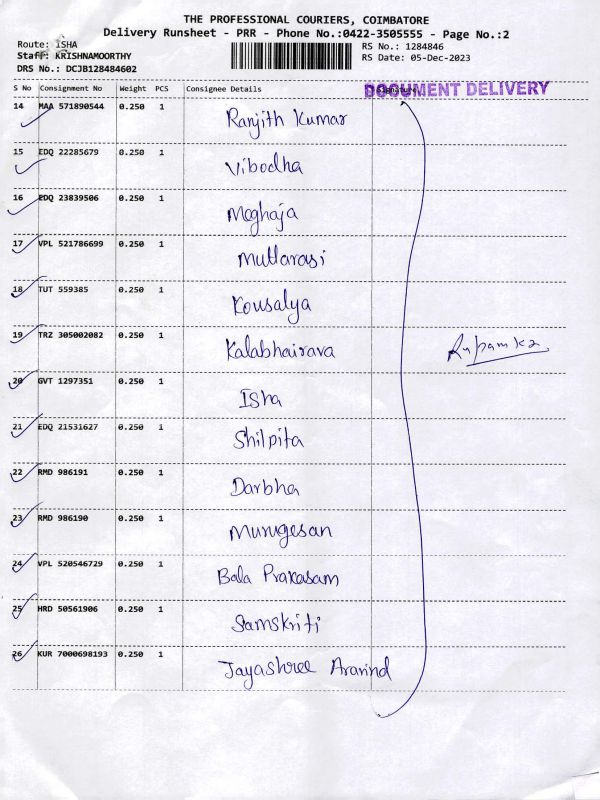 THE PROFESSIONAL COURIERS, COIMBATORE
Delivery Runsheet - PRR - Phone No.:0422-3505555 - Page No.:2
Route: ISHA
RS No.: 1284846
Staff: KRISHNAMOORTHY
RS Date: 05-Dec-2023
DRS No.: DCJB128484602
S No Consignment No Weight PCS Consignee Details Signature
DOCUMENT DELIVERY
14 MAA 571890544 0.250 1 Ranjith Kumar
15 EDQ 22285679 0.250 1 Vibodha
16 EDQ 23839506 0.250 1 Meghaja
17 VPL 521786699 0.250 1 Mullarasi
18 TUT 559385 0.250 1 Kousalya
19 TRZ 305002082 0.250 1 Kalabhairava
Rupamka
20 GVT 1297351 0.250 1 Isha
21 EDQ 21531627 0.250 1 Shilpita
22 RMD 986191 0.250 1 Darbha
23 RMD 986190 0.250 1 Murugesan
24 VPL 520546729 0.250 1 Bala Prakasam
25 HRD 50561906 0.250 1 Samskriti
26 KUR 7000698193 0.250 1 Jayashree Aravind